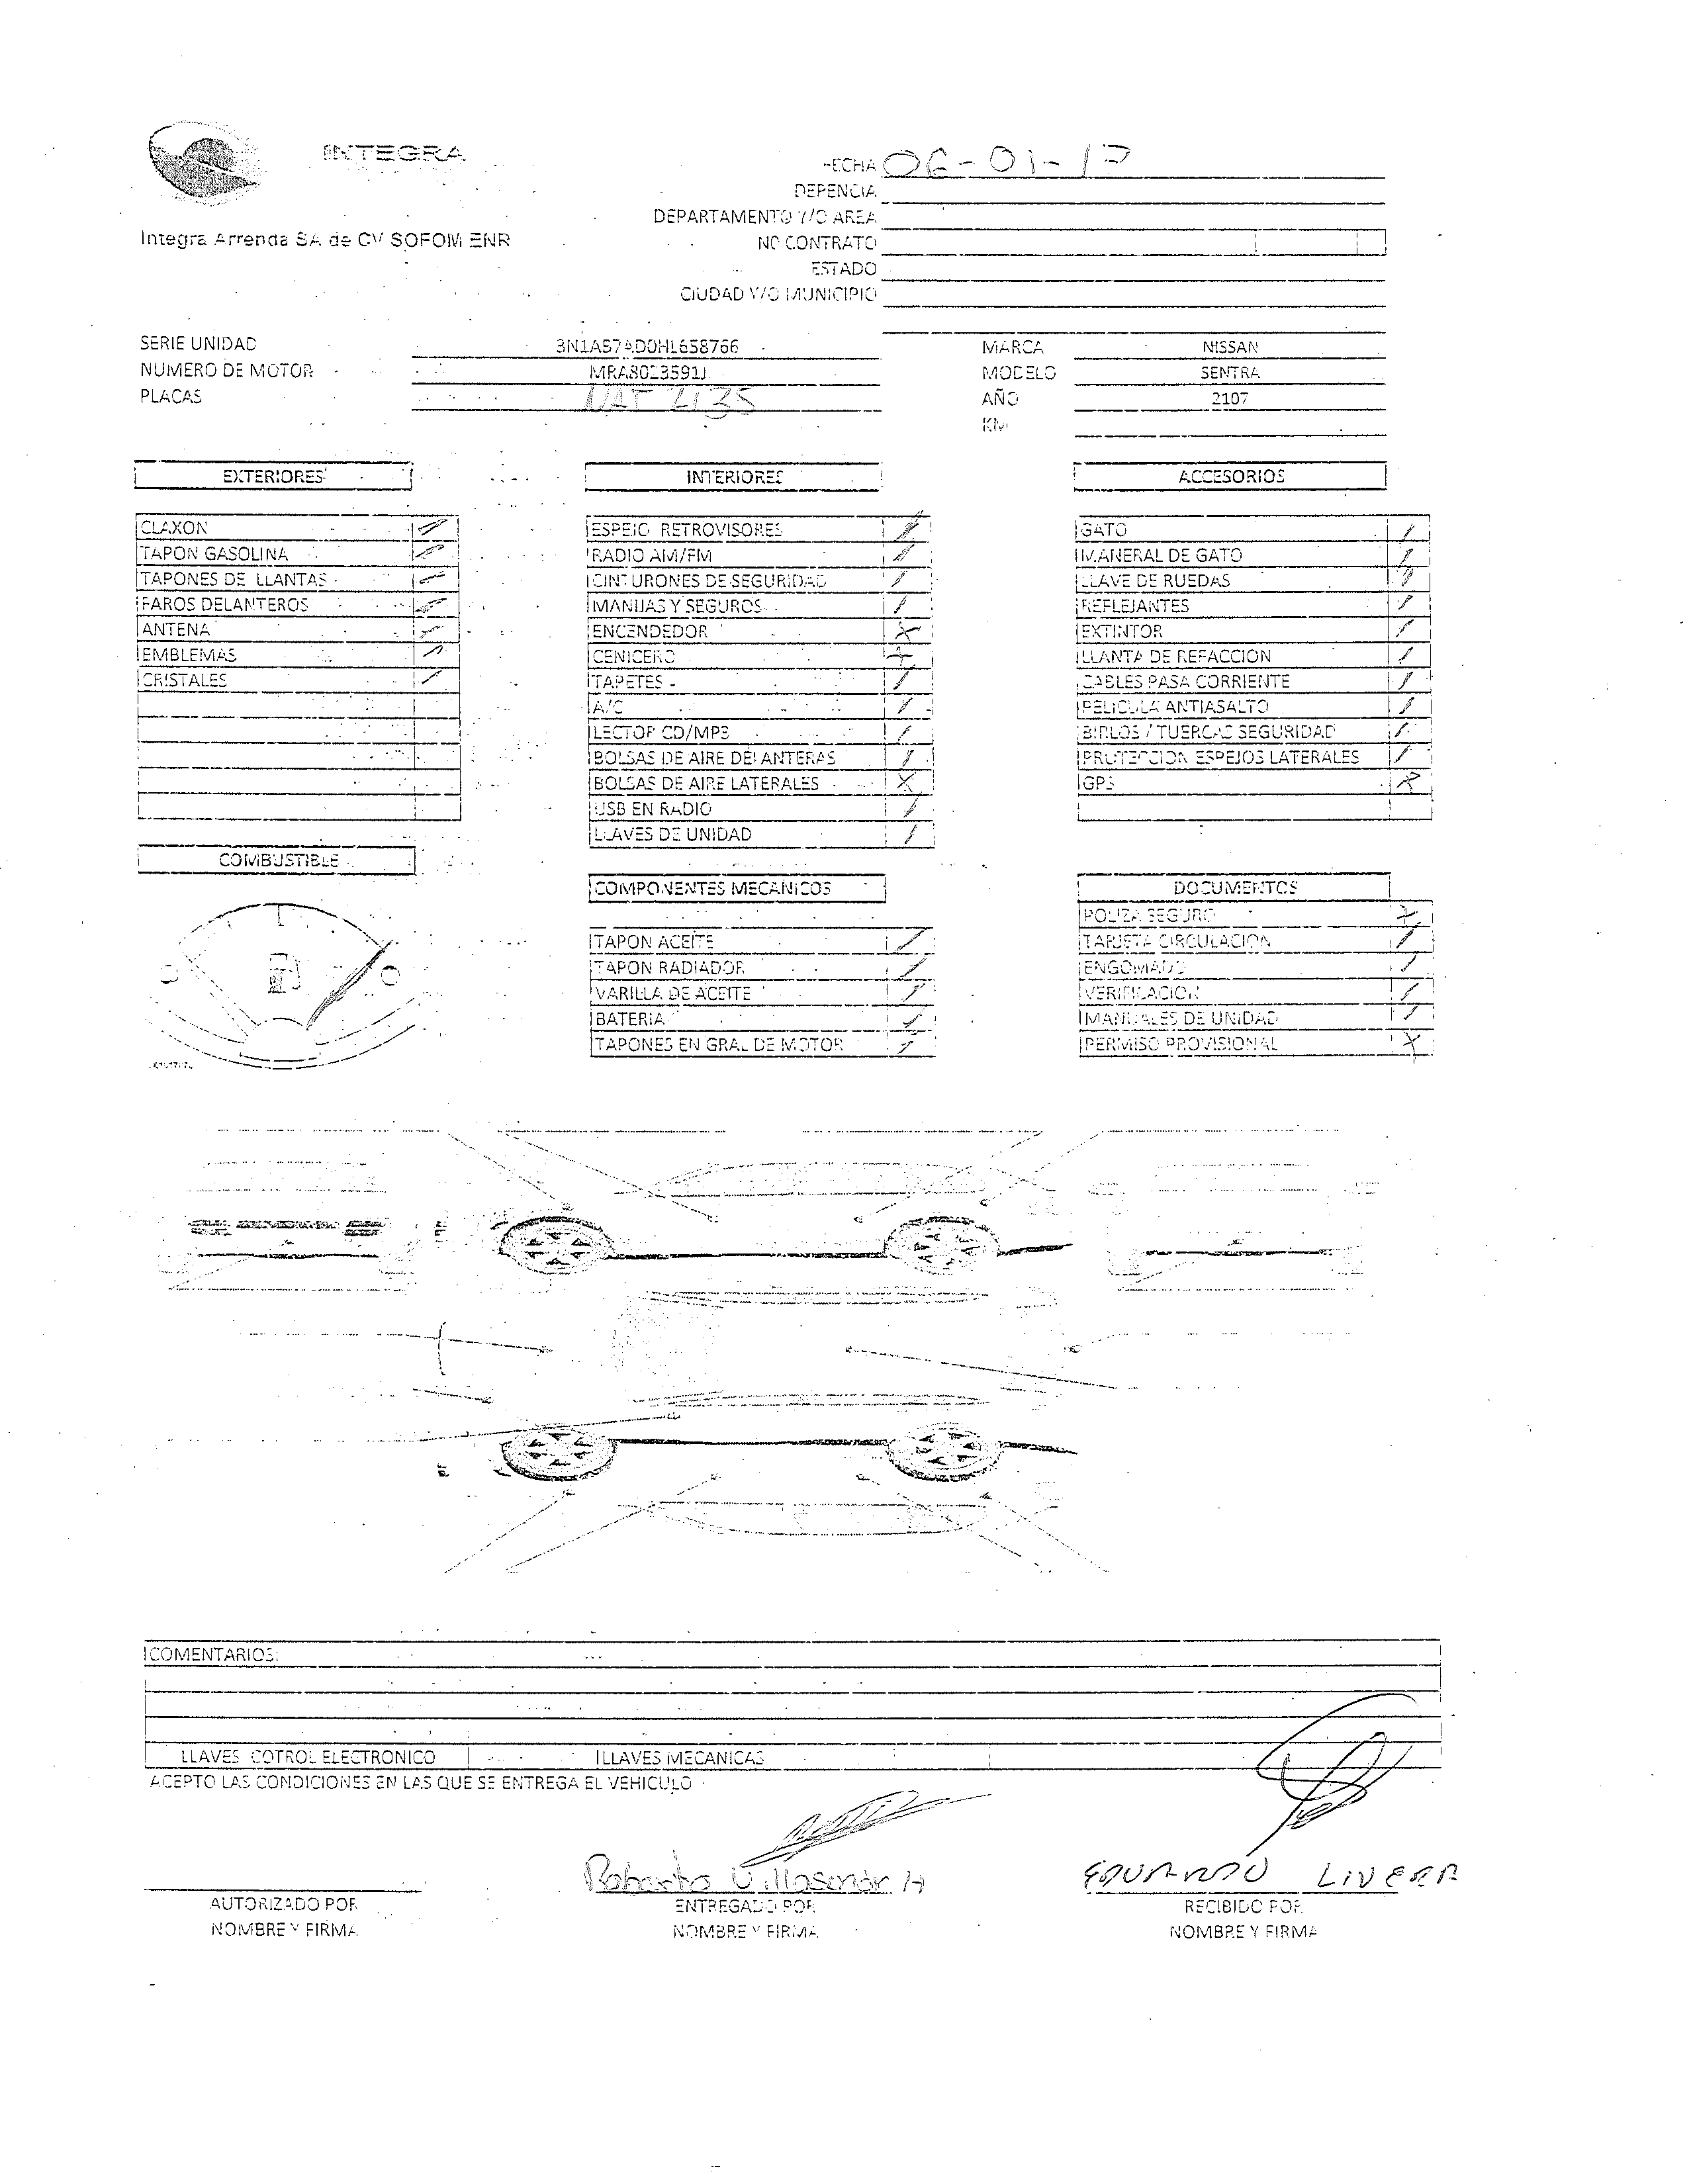 INTEGRA
Integra Arrenda SA de CV SOFOM ENR
FECHA 06-01-17
DEPENCIA
DEPARTAMENTO Y/O AREA
NO CONTRATO
ESTADO
CIUDAD Y/O MUNICIPIO
SERIE UNIDAD 3N1AB7AD0HL658766
NUMERO DE MOTOR MRA8023591J
PLACAS
MARCA NISSAN
MODELO SENTRA
AÑO 2107
KM
EXTERIORES
CLAXON
TAPON GASOLINA
TAPONES DE LLANTAS
FAROS DELANTEROS
ANTENA
EMBLEMAS
CRISTALES
COMBUSTIBLE
INTERIORES
ESPEJO RETROVISORES
RADIO AM/FM
CINTURONES DE SEGURIDAD
MANIJAS Y SEGUROS
ENCENDEDOR
CENICERO
TAPETES
A/C
LECTOR CD/MP3
BOLSAS DE AIRE DELANTERAS
BOLSAS DE AIRE LATERALES
USB EN RADIO
LLAVES DE UNIDAD
COMPONENTES MECANICOS
TAPON ACEITE
TAPON RADIADOR
VARILLA DE ACEITE
BATERIA
TAPONES EN GRAL DE MOTOR
ACCESORIOS
GATO
MANERAL DE GATO
LLAVE DE RUEDAS
REFLEJANTES
EXTINTOR
LLANTA DE REFACCION
CABLES PASA CORRIENTE
PELICULA ANTIASALTO
BIRLOS / TUERCAS SEGURIDAD
PROTECCION ESPEJOS LATERALES
GPS
DOCUMENTOS
POLIZA SEGURO
TARJETA CIRCULACION
ENGOMADO
VERIFICACION
MANUALES DE UNIDAD
PERMISO PROVISIONAL
COMENTARIOS:
LLAVES COTROL ELECTRONICO
LLAVES MECANICAS
ACEPTO LAS CONDICIONES EN LAS QUE SE ENTREGA EL VEHICULO
AUTORIZADO POR
NOMBRE Y FIRMA
Roberto Villaseñor H
ENTREGADO POR
NOMBRE Y FIRMA
EDUARDO LIVERA
RECIBIDO POR
NOMBRE Y FIRMA